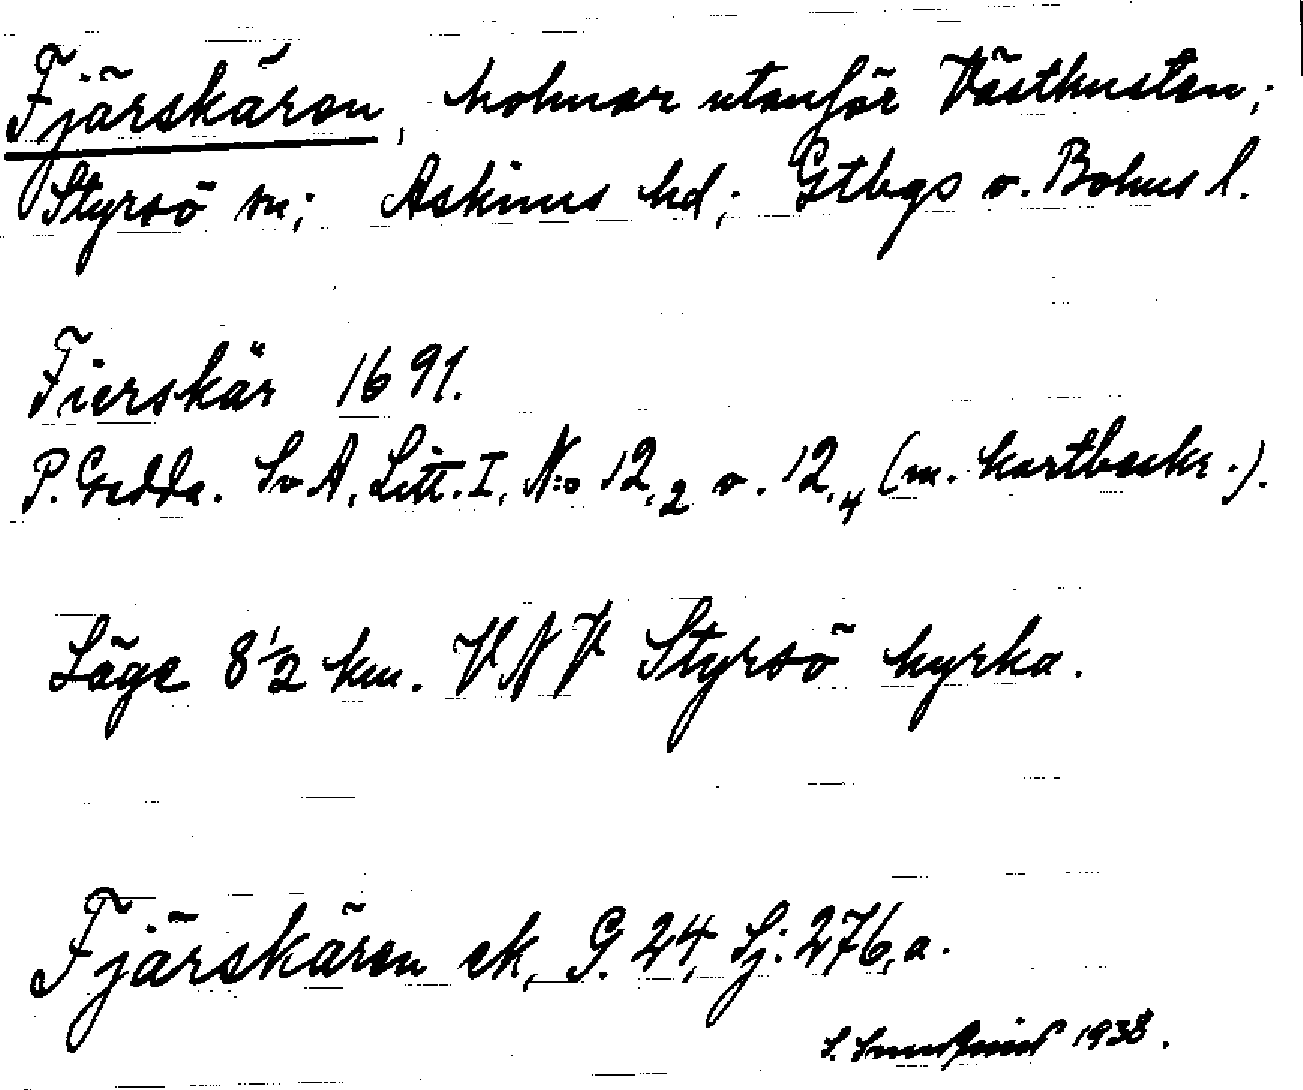 Fjärskären, holmar utanför Västkusten;
Styrsö sn; Askims hd; Gtbgs o. Bohus l.
Fierskär 1691.
P. Gedda. Sv A, Litt. I, N:o 12,2 o. 12,4 (m. kartbeskr.).
Läge 8 1/2 km. VNV Styrsö kyrka.
Fjärskären ek, G. 24, Sj. 276,a.
S. 1938.